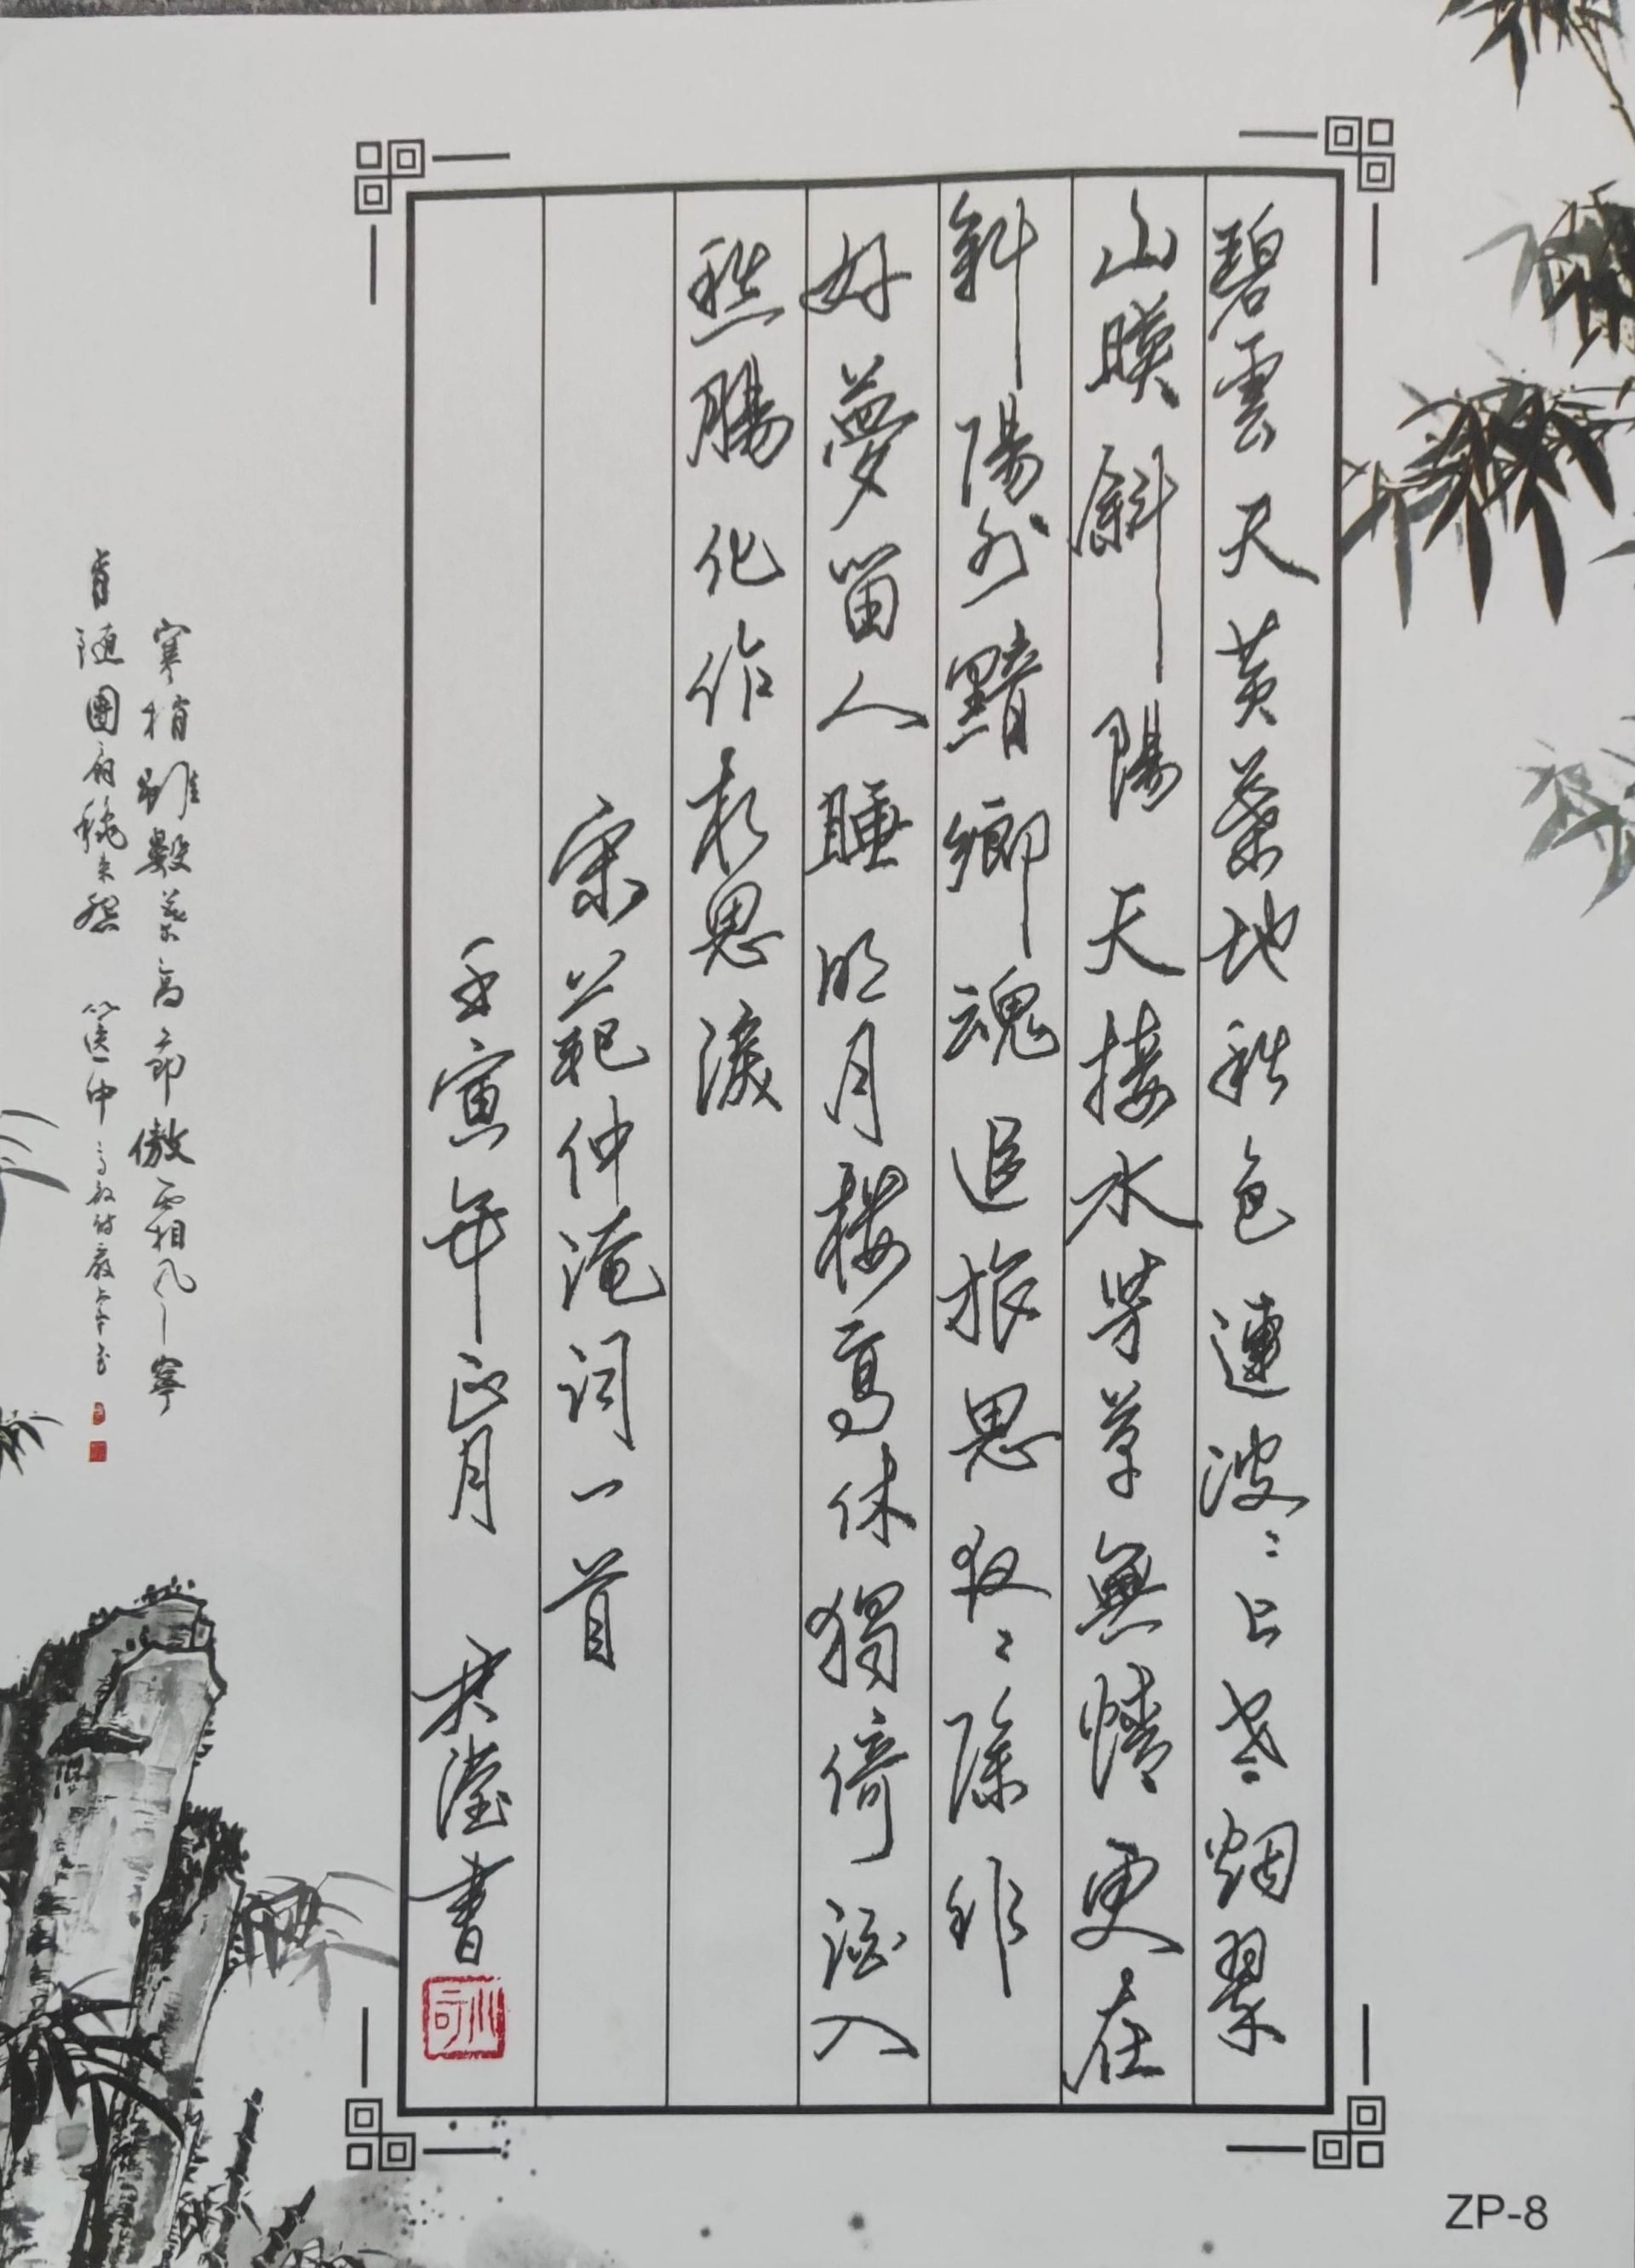 碧雲天黄葉地秋色連波〻上寒烟翠
山暎斜陽天接水芳草無情更在
斜陽外黯鄉魂追旅思夜〻除非
好夢留人睡明月樓高休獨倚酒入
愁腸化作相思淚
宋範仲淹詞一首
壬寅年正月 瀅書
寒梢雖數葉高節傲霜風寧
肯隨團扇秋來怨 篋中
ZP-8